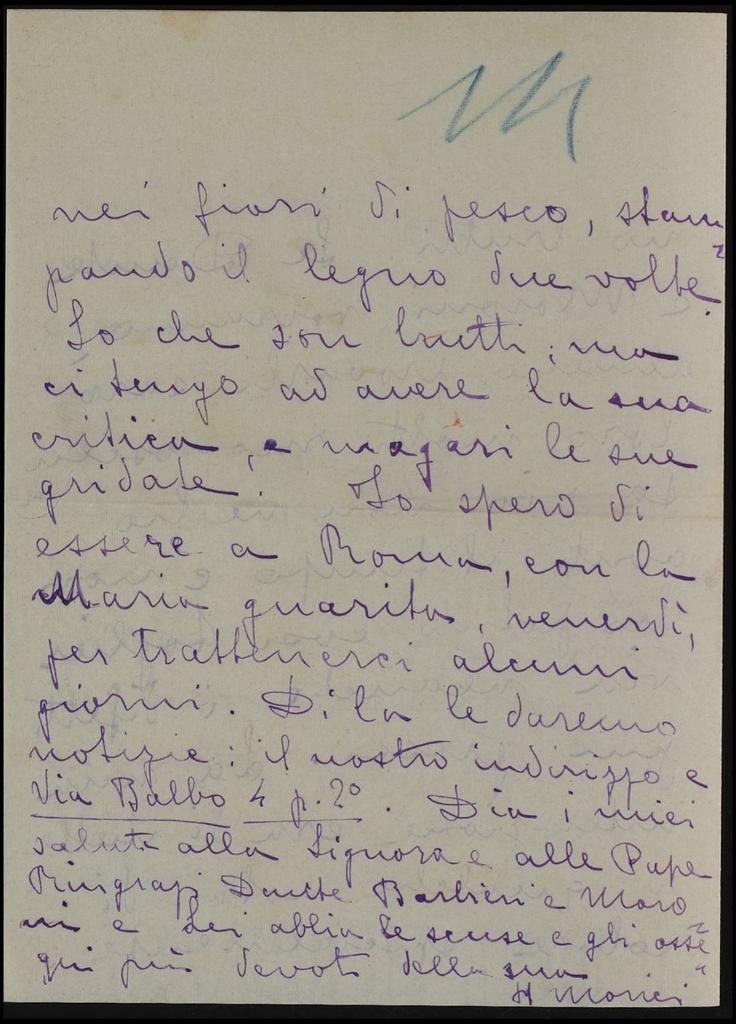 nei fiori di pesco, stam=
pando il legno due volte.
So che son brutti; ma
ci tengo ad avere la sua
critica, e magari le sue
gridate. Io spero di
essere a Roma, con la
Maria guarita, venerdì,
per trattenerci alcuni
giorni. Di la le daremo
notizie: il nostro indirizzo e
Via Balbo 4 p. 2º. Dia i miei
saluti alla Signora e alle Pupe
Ringrazi Dante Barbieri e Moro
ni e Lei abbia le scuse e gli osse=
qui più devoti della sua